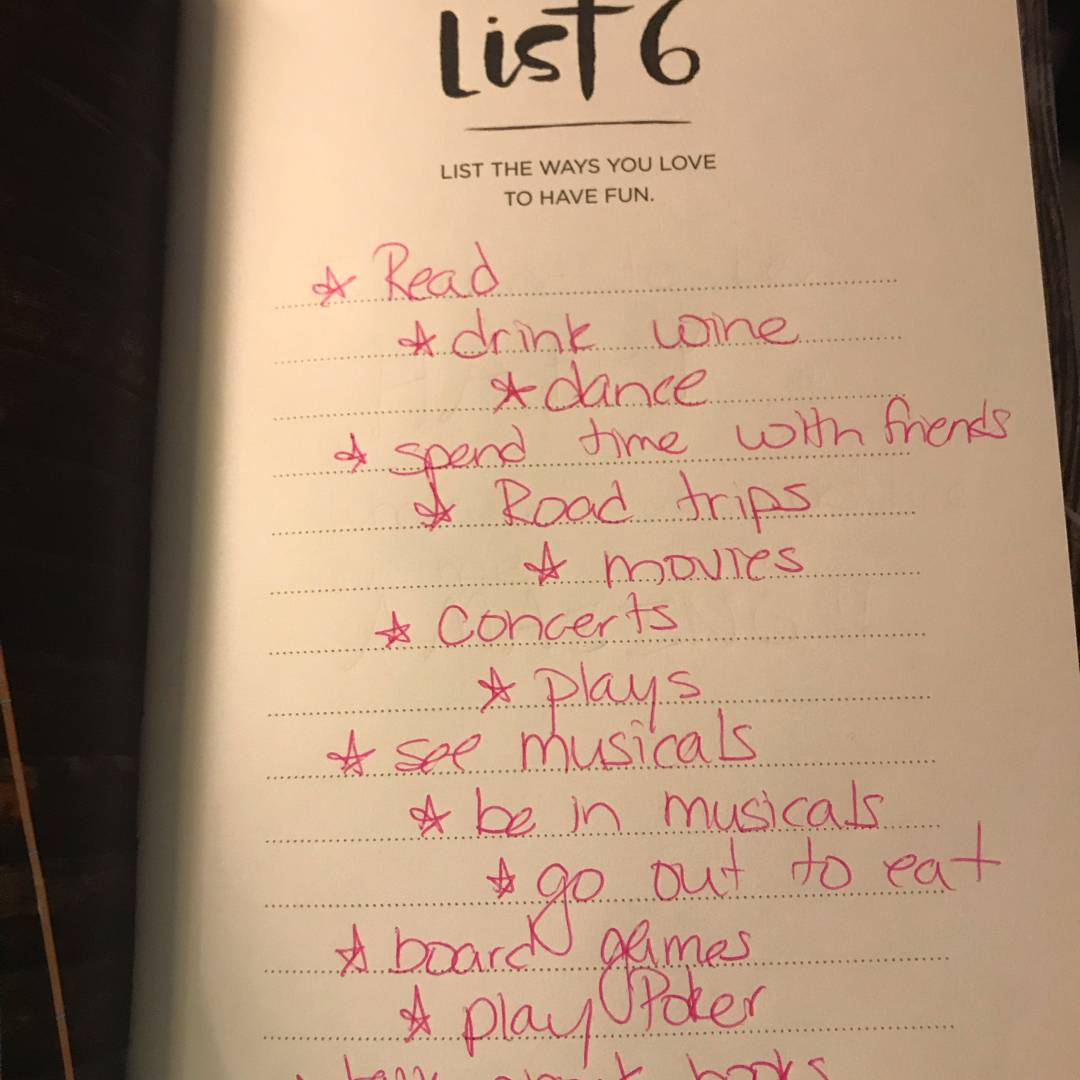 List 6
LIST THE WAYS YOU LOVE
TO HAVE FUN.
Read
drink wine
dance
spend time with friends
Road trips
movies
Concerts
plays
see musicals
be in musicals
go out to eat
board games
play Poker
books